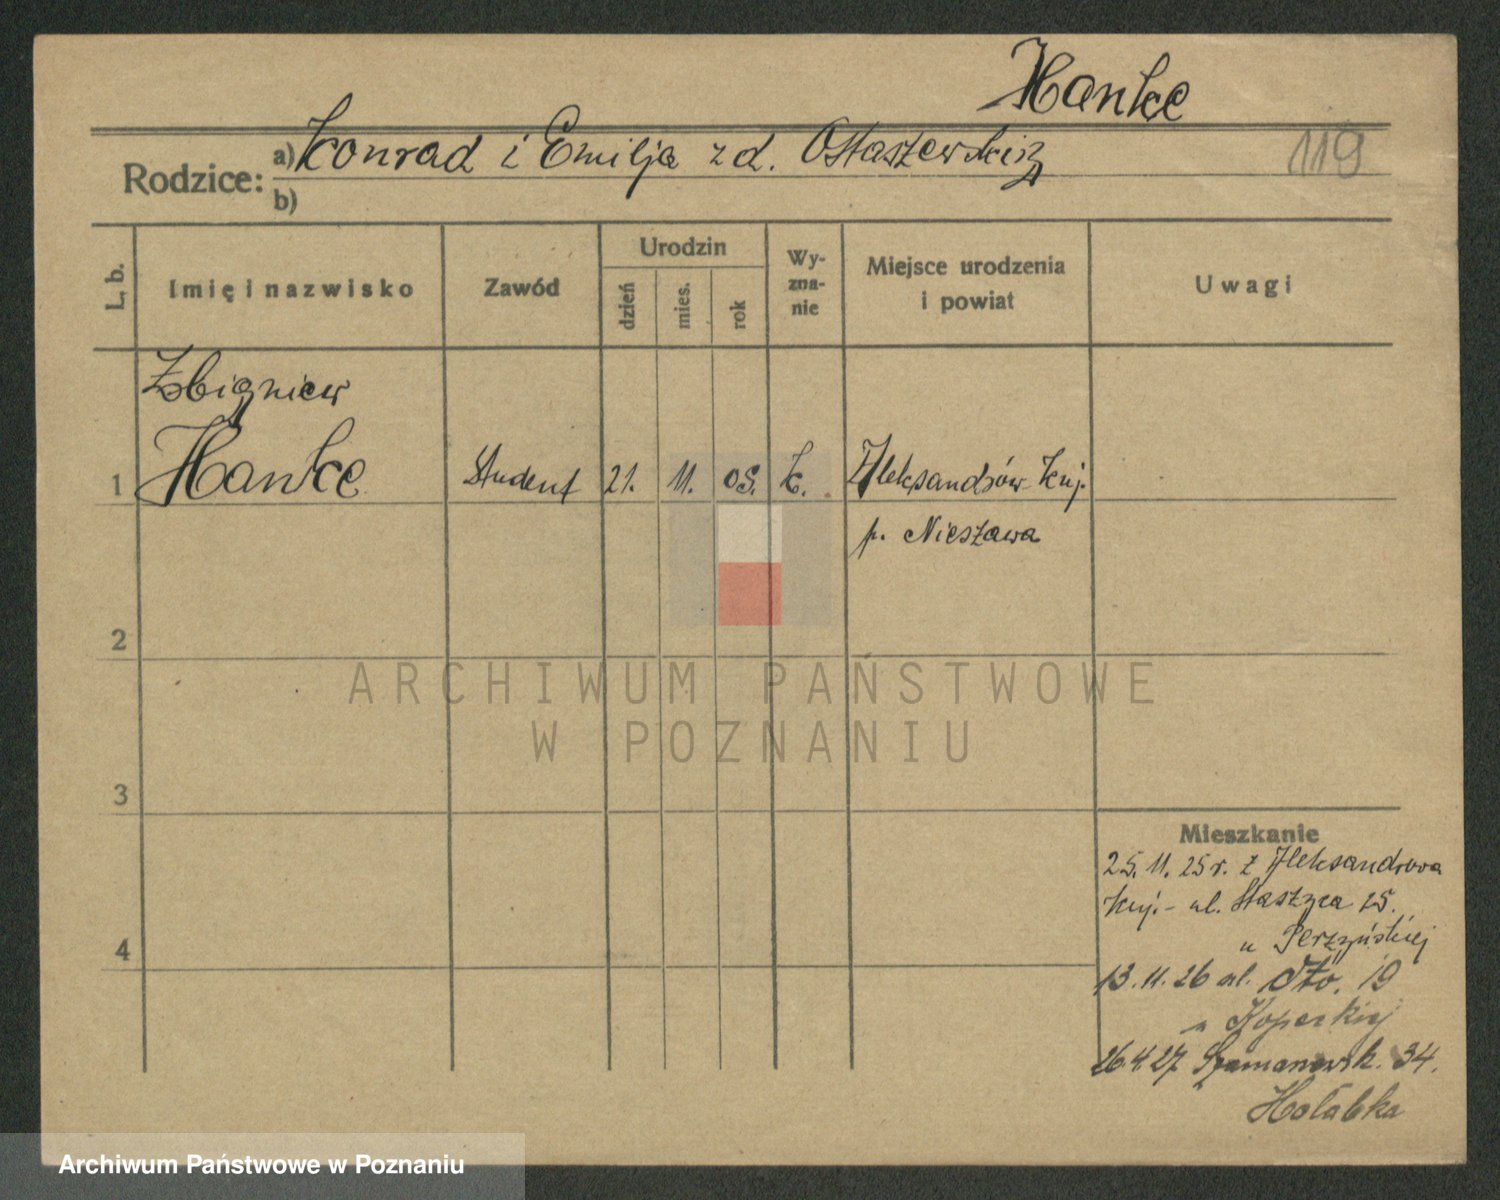 Hanke
119
Rodzice: a) Konrad i Emilja z d. Ostaszewskiej
b)
L. b. Imię i nazwisko Zawód Urodzin dzień mies. rok Wy-zna-nie Miejsce urodzenia i powiat Uwagi
Zbigniew
1 Hanke Student 21. 11. 05. k. Aleksandrów Kuj.
p. Nieszawa
2
3
4
Mieszkanie
25. 11. 25 r. z Aleksandrowa
Kuj. - ul. Staszyca 25.
u Perzyńskiej
13. 11. 26 ul. 19
u
26.4.27 34.
Hołabka
ARCHIWUM PAŃSTWOWE
W POZNANIU
Archiwum Państwowe w Poznaniu